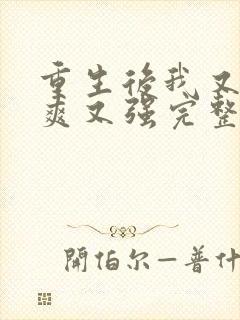 重生後我又
爽又强完整
開伯尔—普什